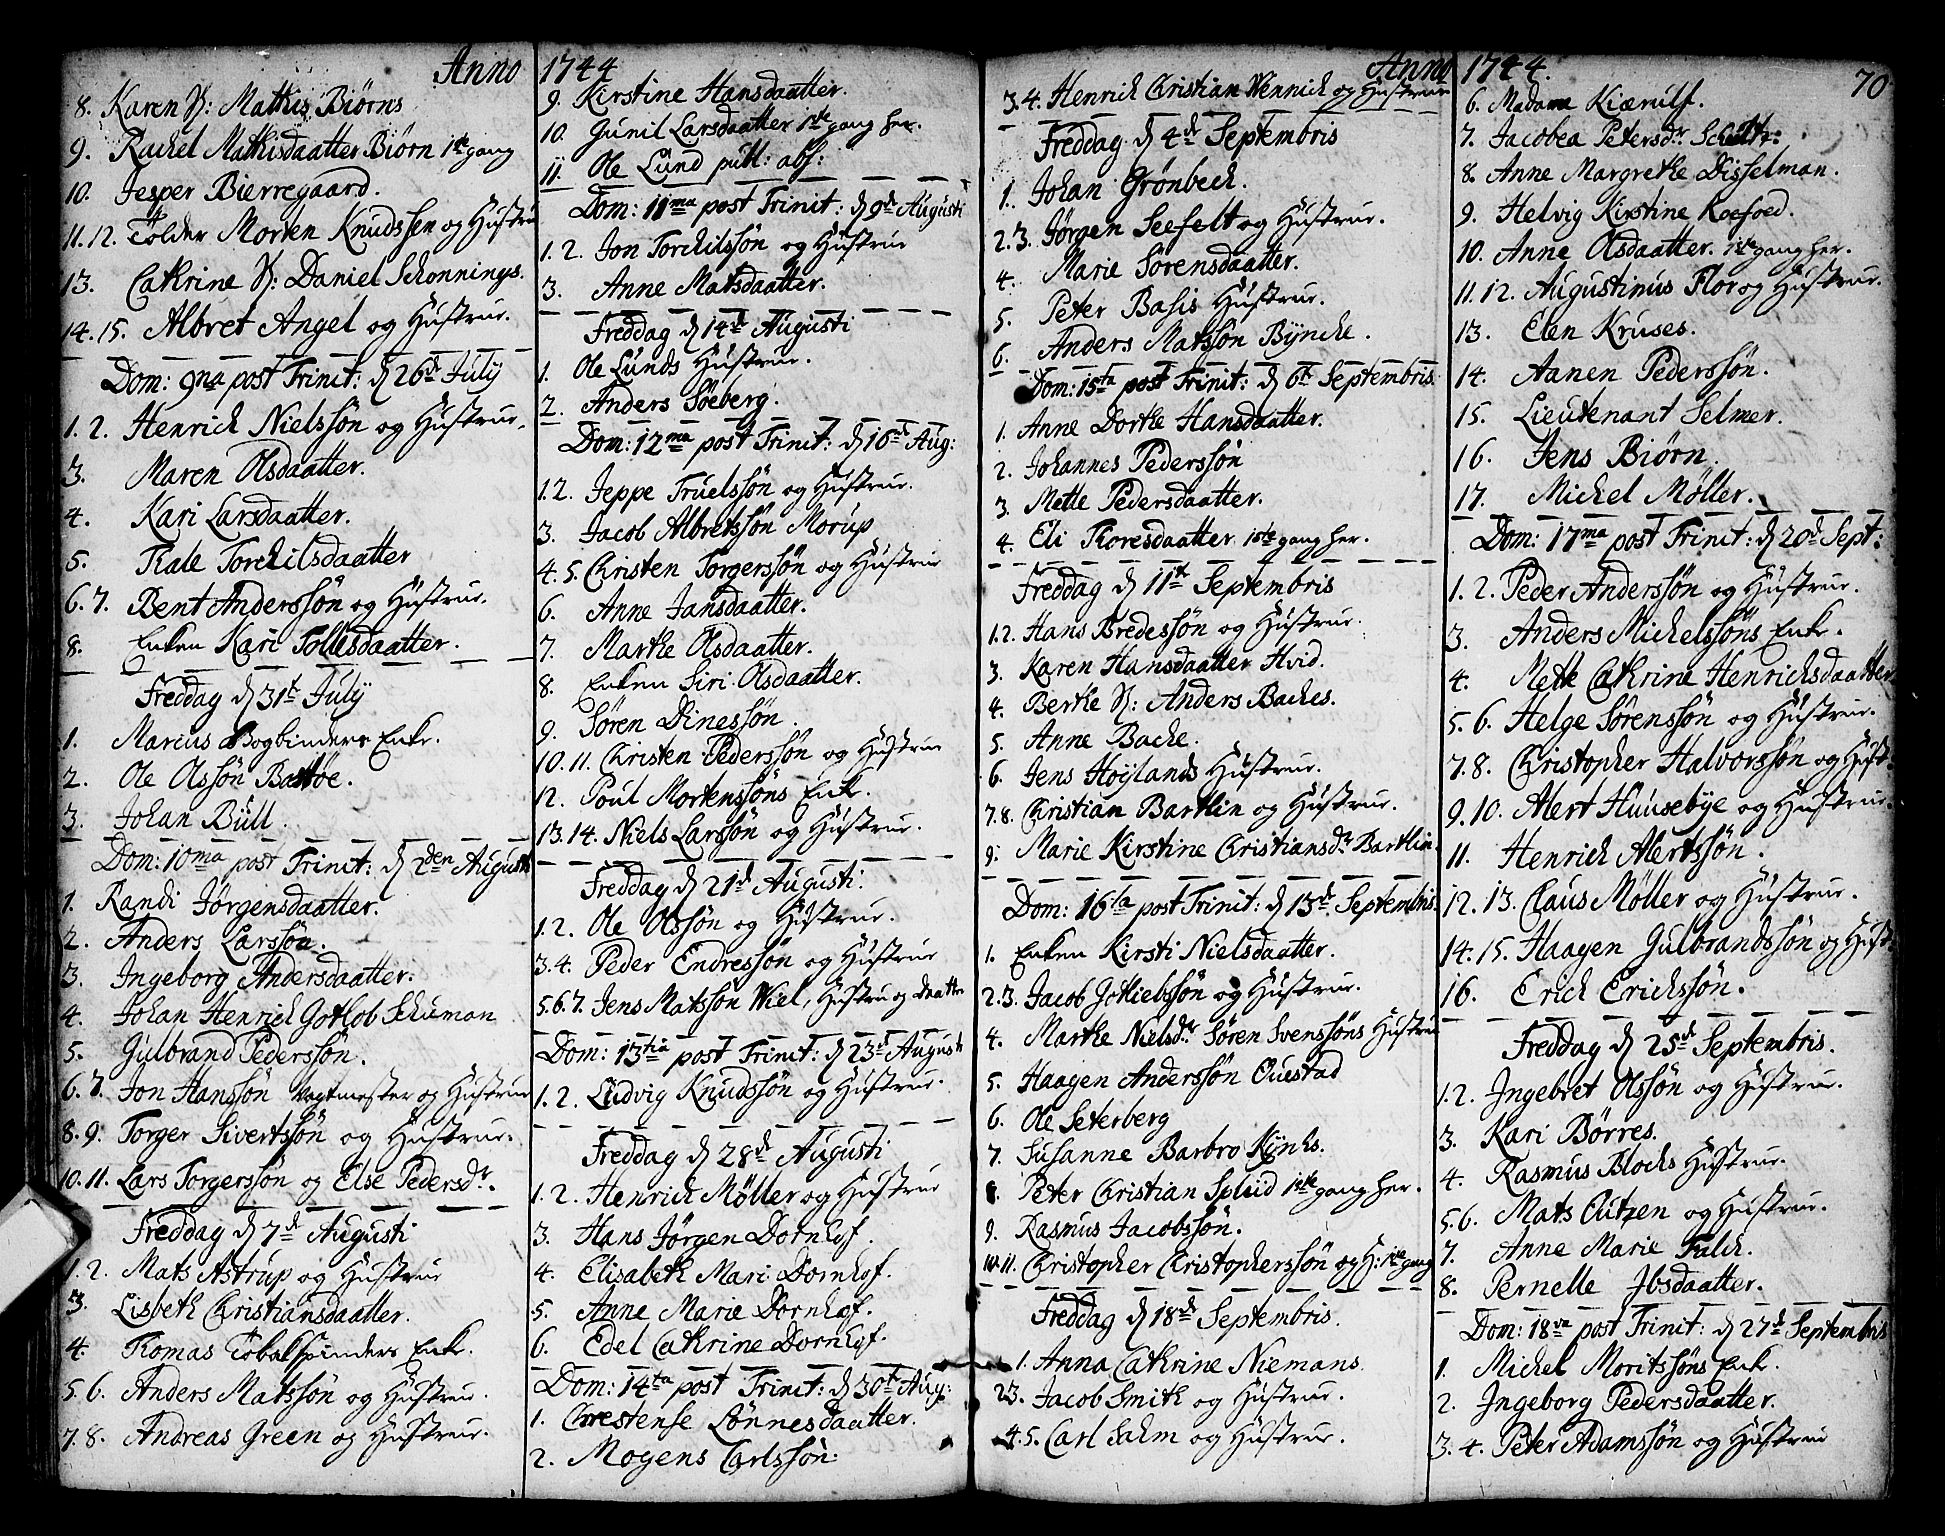 Anno 1744
8. Karen N: Mathis Biørns
9. Rachel Mathisdaatter Biørn 1ste gang
10. Jesper Bierregaard.
11.12. Tolder Morten Knudssen og Hustru
13. Cathrine N: Daniel Schonnings.
14.15. Albret Angel og Hustrue.
Dom: 9na post Trinit: d 26d July
1. 2. Henrich Nielssøn og Hustrue.
3. Maren Olsdaatter.
4. Kari Larsdaatter.
5. Thale Torchilsdaatter
6.7. Bent Anderssøn og Hustrue.
8. Enken Kari Tollesdaatter.
Freddag d 31t July
1. Marcus Bogbinders Enke.
2. Ole Olssøn Bastøe.
3. Johan Bull.
Dom: 10ma post Trinit: d 2den Augusti
1. Randi Jørgensdaatter.
2. Anders Larssøn.
3. Ingeborg Andersdaatter.
4. Johan Henrich Gotlob Schuman
5. Gulbrand Pederssøn.
6.7. Jon Hanssøn Vagtmester og Hustrue
8.9. Torger Sivertssøn og Hustrue.
10.11. Lars Torgerssøn og Else Pedersdr.
Freddag d 7d Augusti
1.2. Mats Astrup og Hustrue
3. Lisbeth Christiansdaatter.
4. Thomas Tobakspinders Enke.
5.6. Anders Matssøn og Hustrue.
7.8. Andreas Green og Hustrue.
9. Kirstine Hansdaatter.
10. Gunil Larsdaatter 1ste gang her.
11. Ole Lund publ: abs:
Dom: 11ma post Trinit: d 9d Augusti
1.2. Jon Torchilssøn og Hustrue
3. Anne Matsdaatter.
Freddag d 14d Augusti
1. Ole Lunds Hustrue.
2. Anders Søeberg.
Dom: 12ma post Trinit: d 16d Aug:
1.2. Jeppe Truelssøn og Hustrue.
3. Jacob Albretssøn Morup
4.5. Christen Torgerssøn og Hustrue
6. Anne Jansdaatter.
7. Marthe Olsdaatter.
8. Enken Siri Olsdaatter.
9. Søren Dinessøn.
10.11. Christen Pederssøn og Hustrue
12. Poul Mortenssøns Enke.
13.14. Niels Larssøn og Hustrue.
Freddag d 21d Augusti.
1.2. Ole Olssøn og Hustrue.
3.4. Peder Endressøn og Hustrue
5.6.7. Jens Matssøn Wiel, Hustru og Daatter
Dom: 13tia post Trinit: d 23d Augusti
1.2. Ludvig Knudssøn og Hustrue.
Freddag d 28d Augusti
1.2. Henrich Møller og Hustrue
3. Hans Jørgen Dornhof.
4. Elisabeth Mari Dornhof.
5. Anne Marie Dornhof.
6. Edel Cathrine Dornhof.
Dom: 14ta post Trinit: d 30t Aug:
1. Chrestense Lønnesdaatter.
2. Mogens Carlssøn:
Anno 1744. 70
3.4. Henrich Christian Wennich og Hustrue
Freddag d 4d Septembris
1. Johan Grønbech.
2.3. Jørgen Seefelt og Hustrue.
4. Marie Sørensdaatter.
5. Peter Basis Hustrue.
6. Anders Matssøn Byncke.
Dom: 15ta post Trinit: d 6t Septembris.
1. Anne Dorthe Hansdaatter.
2. Johannes Pederssøn
3. Mette Pedersdaatter.
4. Eli Thoresdaatter 1ste gang her.
Freddag d 11t Septembris
1.2. Hans Bredessøn og Hustrue.
3. Karen Hansdaatter Hvid.
4. Berthe N: Anders Baches.
5. Anne Bache.
6. Jens Høylands Hustrue.
7.8. Christian Bartlin og Hustrue.
9. Marie Kirstine Christiansdr Bartlin.
Dom: 16ta post Trinit: d 13d Septembris.
1. Enken Kirsti Nielsdaatter.
2.3. Jacob Gotliebssøn og Hustrue.
4. Marthe Nielsdr Søren Svenssøns Hustrue
5. Haagen Anderssøn Ouestad
6. Ole Seterberg
7. Susanne Barbro Kynhs.
8. Peter Christian Splud 1ste gang her.
9. Rasmus Jacobssøn.
10.11. Christopher Christopherssøn og H: 1te gang
Freddag d 18d Septembris.
1. Anna Cathrine Niemans.
2.3. Jacob Smith og Hustrue.
4.5. Carl Sahm og Hustrue.
6. Madame Kiærulf.
7. Jacobea Petersdr Schultz.
8. Anne Margrethe Disselman.
9. Helvig Kirstine Roefoed.
10. Anne Olsdaatter. 1ste gang her.
11.12. Augustinus Flor og Hustrue.
13. Elen Kruses.
14. Aanen Pederssøn.
15. Lieutenant Selmer.
16. Jens Biørn.
17. Michel Møller.
Dom: 17ma post Trinit: d 20d Sept:
1. 2. Peder Anderssøn og Hustrue.
3. Anders Michelssøns Enke.
4. Mette Cathrine Henrichsdaatter
5.6. Helge Sørenssøn og Hustrue.
7.8. Christopher Halvorssøn og Hust:
9.10. Alert Huusebye og Hustrue.
11. Henrich Alertssøn.
12.13. Claus Møller og Hustrue.
14.15. Haagen Gulbrandssøn og Hust:
16. Erich Erichssøn.
Freddag d 25d Septembris.
1.2. Ingebret Olssøn og Hustrue.
3. Kari Børres.
4. Rasmus Blochs Hustrue.
5.6. Mats Outzen og Hustrue.
7. Anne Marie Falch.
8. Pernelle Ibsdaatter.
Dom: 18va post Trinit: d 27d Septembris
1. Michel Moritssøns Enk.
2. Ingeborg Pedersdaatter.
3.4. Peter Adamssøn og Hustrue